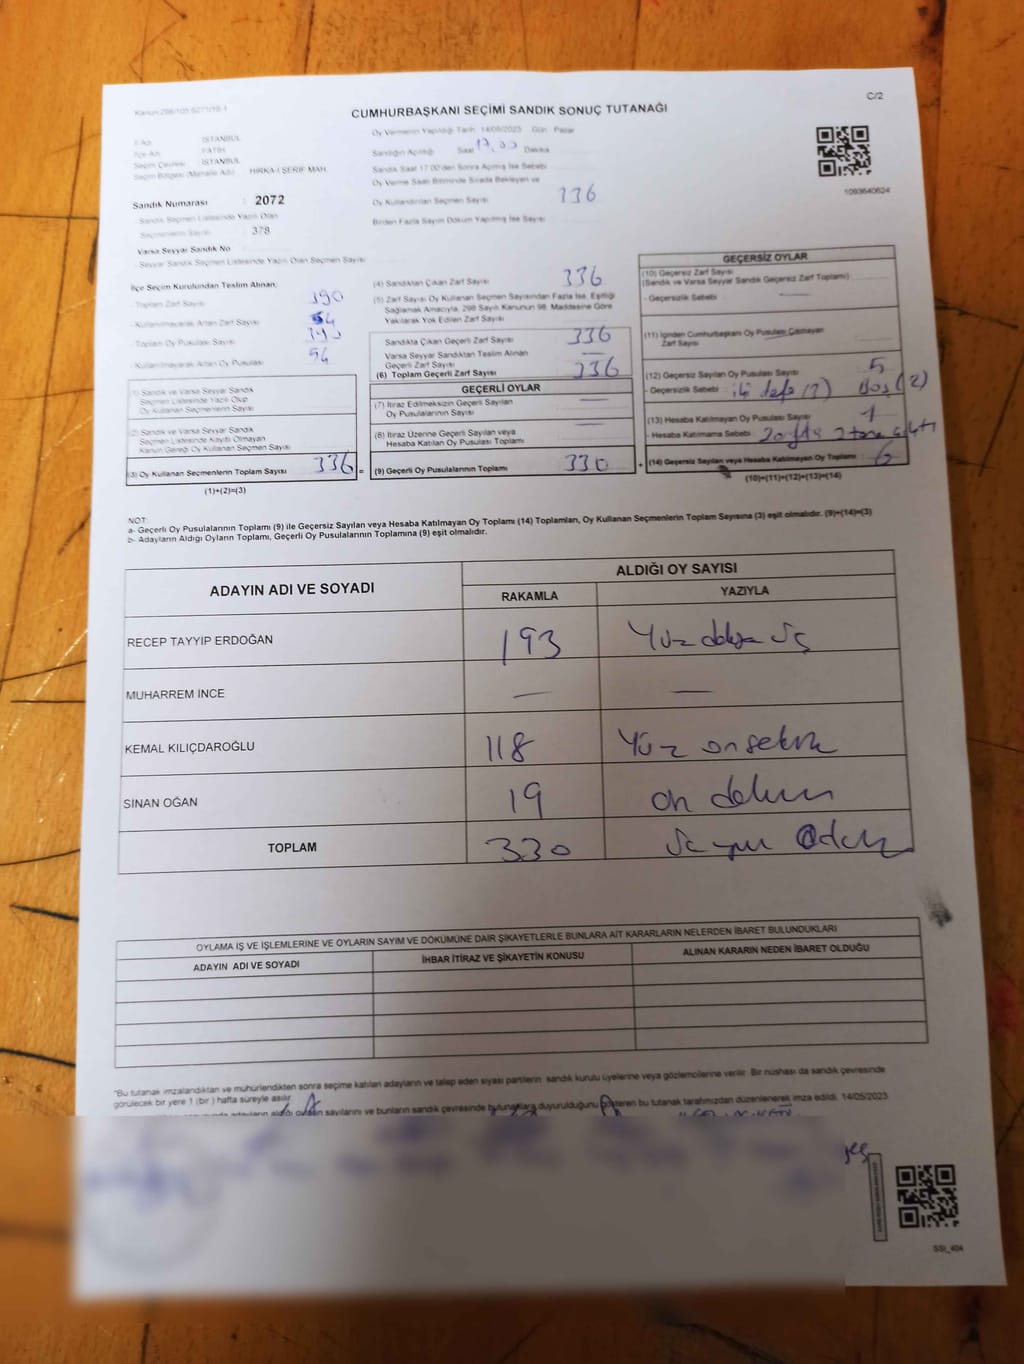 Kanun:298/105 5271/18-1
C/2
CUMHURBAŞKANI SEÇİMİ SANDIK SONUÇ TUTANAĞI
İl Adı : İSTANBUL
İlçe Adı : FATİH
Seçim Çevresi : İSTANBUL
Seçim Bölgesi (Mahalle Adı) : HIRKA-I ŞERİF MAH.
Sandık Numarası : 2072
- Sandık Seçmen Listesinde Yazılı Olan
Seçmenlerin Sayısı : 378
Varsa Seyyar Sandık No
- Seyyar Sandık Seçmen Listesinde Yazılı Olan Seçmen Sayısı
Oy Vermenin Yapıldığı Tarih: 14/05/2023 Gün: Pazar
Sandığın Açıldığı Saat 17.00 Dakika
Sandık Saat 17:00'den Sonra Açılmış İse Sebebi
Oy Verme Saati Bitiminde Sırada Bekleyen ve
Oy Kullandırılan Seçmen Sayısı 336
Birden Fazla Sayım Döküm Yapılmış İse Sayısı
1093640624
İlçe Seçim Kurulundan Teslim Alınan;
- Toplam Zarf Sayısı 390
- Kullanılmayarak Artan Zarf Sayısı 54
- Toplam Oy Pusulası Sayısı
- Kullanılmayarak Artan Oy Pusulası 54
(1) Sandık ve Varsa Seyyar Sandık
Seçmen Listesinde Yazılı Olup
Oy Kullanan Seçmenlerin Sayısı
(2) Sandık ve Varsa Seyyar Sandık
Seçmen Listesinde Kayıtlı Olmayan
Kanun Gereği Oy Kullanan Seçmen Sayısı
(3) Oy Kullanan Seçmenlerin Toplam Sayısı 336 =
(1)+(2)=(3)
(4) Sandıktan Çıkan Zarf Sayısı 336
(5) Zarf Sayısı Oy Kullanan Seçmen Sayısından Fazla İse, Eşitliği
Sağlamak Amacıyla, 298 Sayılı Kanunun 98. Maddesine Göre
Yakılarak Yok Edilen Zarf Sayısı
Sandıkta Çıkan Geçerli Zarf Sayısı 336
Varsa Seyyar Sandıktan Teslim Alınan
Geçerli Zarf Sayısı —
(6) Toplam Geçerli Zarf Sayısı 336
GEÇERLİ OYLAR
(7) İtiraz Edilmeksizin Geçerli Sayılan
Oy Pusulalarının Sayısı —
(8) İtiraz Üzerine Geçerli Sayılan veya
Hesaba Katılan Oy Pusulası Toplamı —
(9) Geçerli Oy Pusulalarının Toplamı 330 +
GEÇERSİZ OYLAR
(10) Geçersiz Zarf Sayısı
(Sandık ve Varsa Seyyar Sandık Geçersiz Zarf Toplamı)
- Geçersizlik Sebebi —
(11) İçinden Cumhurbaşkanı Oy Pusulası Çıkmayan
Zarf Sayısı
(12) Geçersiz Sayılan Oy Pusulası Sayısı 5
- Geçersizlik Sebebi iki defa (3) Boş (2)
(13) Hesaba Katılmayan Oy Pusulası Sayısı 1
- Hesaba Katılmama Sebebi
(14) Geçersiz Sayılan veya Hesaba Katılmayan Oy Toplamı 6
(10)+(11)+(12)+(13)=(14)
NOT:
a- Geçerli Oy Pusulalarının Toplamı (9) ile Geçersiz Sayılan veya Hesaba Katılmayan Oy Toplamı (14) Toplamları, Oy Kullanan Seçmenlerin Toplam Sayısına (3) eşit olmalıdır. (9)+(14)=(3)
b- Adayların Aldığı Oyların Toplamı, Geçerli Oy Pusulalarının Toplamına (9) eşit olmalıdır.
ADAYIN ADI VE SOYADI
ALDIĞI OY SAYISI
RAKAMLA YAZIYLA
RECEP TAYYİP ERDOĞAN 193 Yüz doksan üç
MUHARREM İNCE — —
KEMAL KILIÇDAROĞLU 118 Yüz onsekiz
SİNAN OĞAN 19 on dokuz
TOPLAM 330
OYLAMA İŞ VE İŞLEMLERİNE VE OYLARIN SAYIM VE DÖKÜMÜNE DAİR ŞİKAYETLERLE BUNLARA AİT KARARLARIN NELERDEN İBARET BULUNDUKLARI
ADAYIN ADI VE SOYADI İHBAR İTİRAZ VE ŞİKAYETİN KONUSU ALINAN KARARIN NEDEN İBARET OLDUĞU
"Bu tutanak imzalandıktan ve mühürlendikten sonra seçime katılan adayların ve talep eden siyasi partilerin sandık kurulu üyelerine veya gözlemcilerine verilir. Bir nüshası da sandık çevresinde
görülecek bir yere 1 (bir) hafta süreyle asılır.
adayların aldığı oyların sayılarını ve bunların sandık çevresinde bulunanlara duyurulduğunu gösteren bu tutanak tarafımızdan düzenlenerek imza edildi. 14/05/2023
SSİ_404